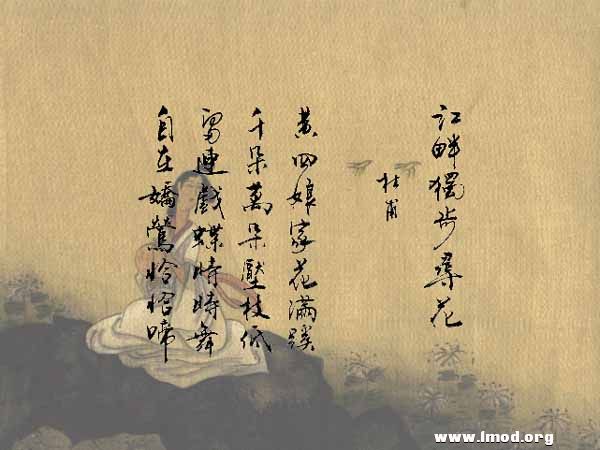 江畔獨步尋花
杜甫
黃四娘家花滿蹊
千朵萬朵壓枝低
留連戲蝶時時舞
自在嬌鶯恰恰啼
www.1mod.org